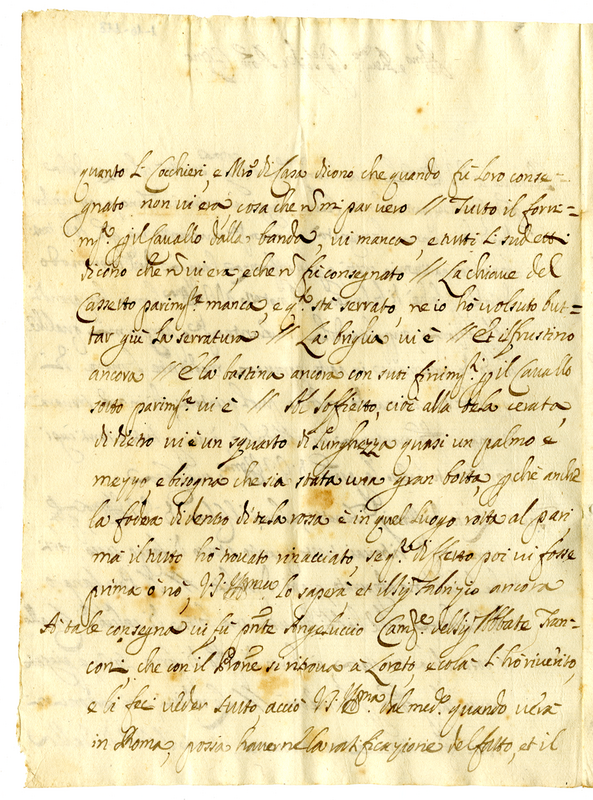 quanto li Cocchieri, e Mro di Casa dicono che quando fù loro conse=
gnato non vi era, cosa che nō mi par vero // Tutto il forni=
mto p il Cavallo dalla banda, vi manca, e tutti li sudetti
dicono che nō vi era, e che nō fù consegnato // La chiave del
Cassetto parimte manca, e qto stà serrato, ne io hò volsuto but=
tar giù la serratura // La briglia vi è // et il frustino
ancora // e la bastina ancora con suoi finimti p il Cavallo
sotto parimte vi è // Al soffietto, cioè alla tela cerata,
di dietro vi è un squarto di lunghezza quasi un palmo e
mezzo, e bisogna che sia stata una gran botta, p chè anche
la fodera di dentro di tela rossa è in quel luogo rotta al pari
mà il tutto hò trovato rinacciato, se qto difetto poi vi fosse
prima ò nò, V.S. Illma lo saperà et il Sig Fabrizio ancora
A tale consegna vi fù pnte Angeluccio Camre del Sig Abbate Fran=
coni, che con il Prone si ritrova à Loreto, e colà li hò riverito,
e li feci veder tutto, acciò V.S. Illma dal medo quando verà
in Roma, possa haverne la ratificazione del fatto, et il